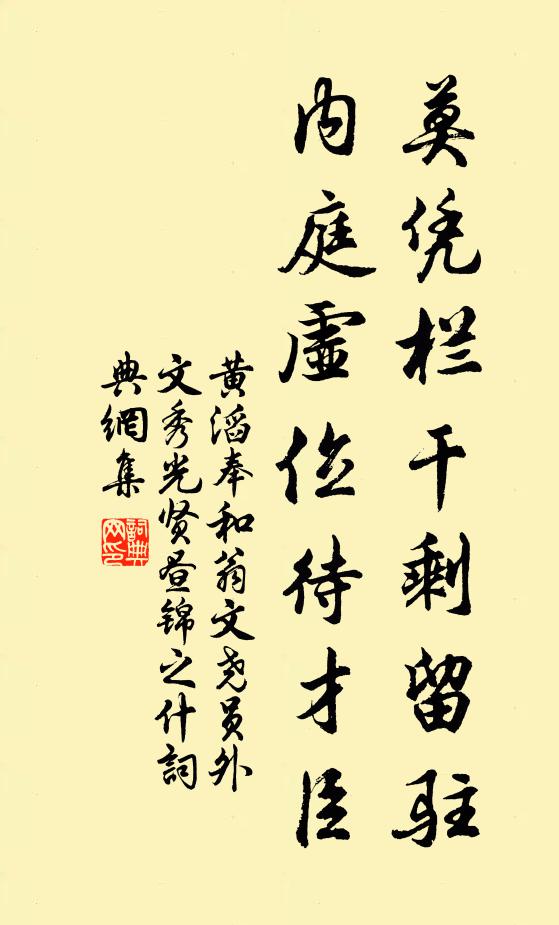 莫凭栏干剩留驻
内庭虚位待才臣
黄滔奉和翁文尧员外
文秀光贤昼锦之什詞
典網集
詞典网印